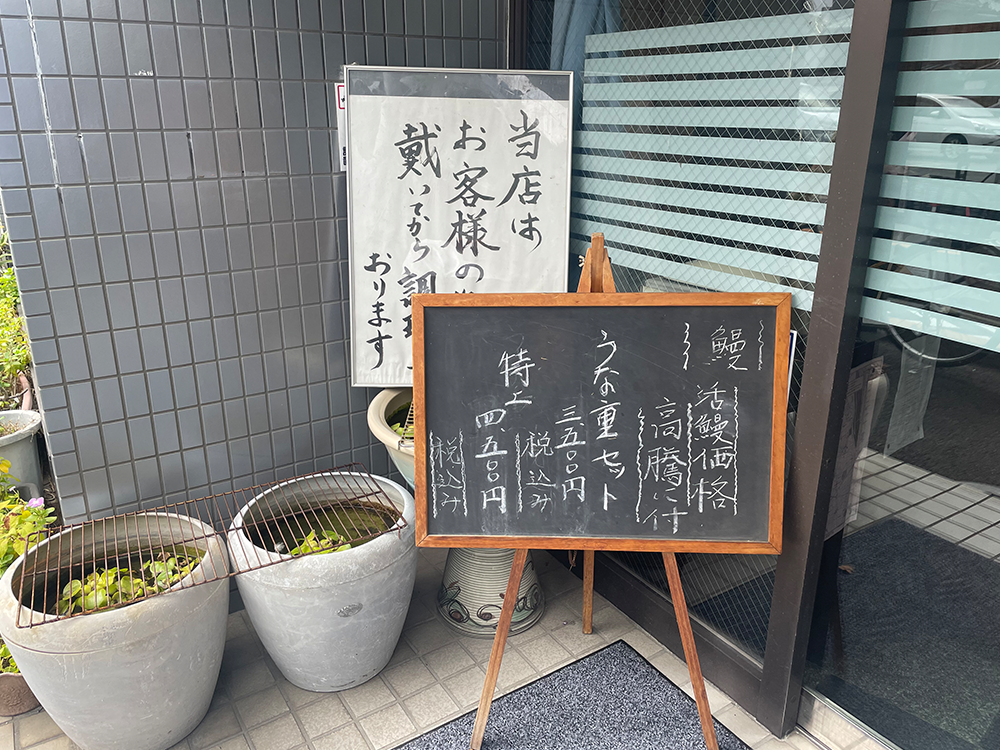 当店は
お客様の
戴いてから調理
おります
鰻
活鰻価格
高騰に付
うな重セット
三、五〇〇円
税込み
特上
四、五〇〇円
税込み